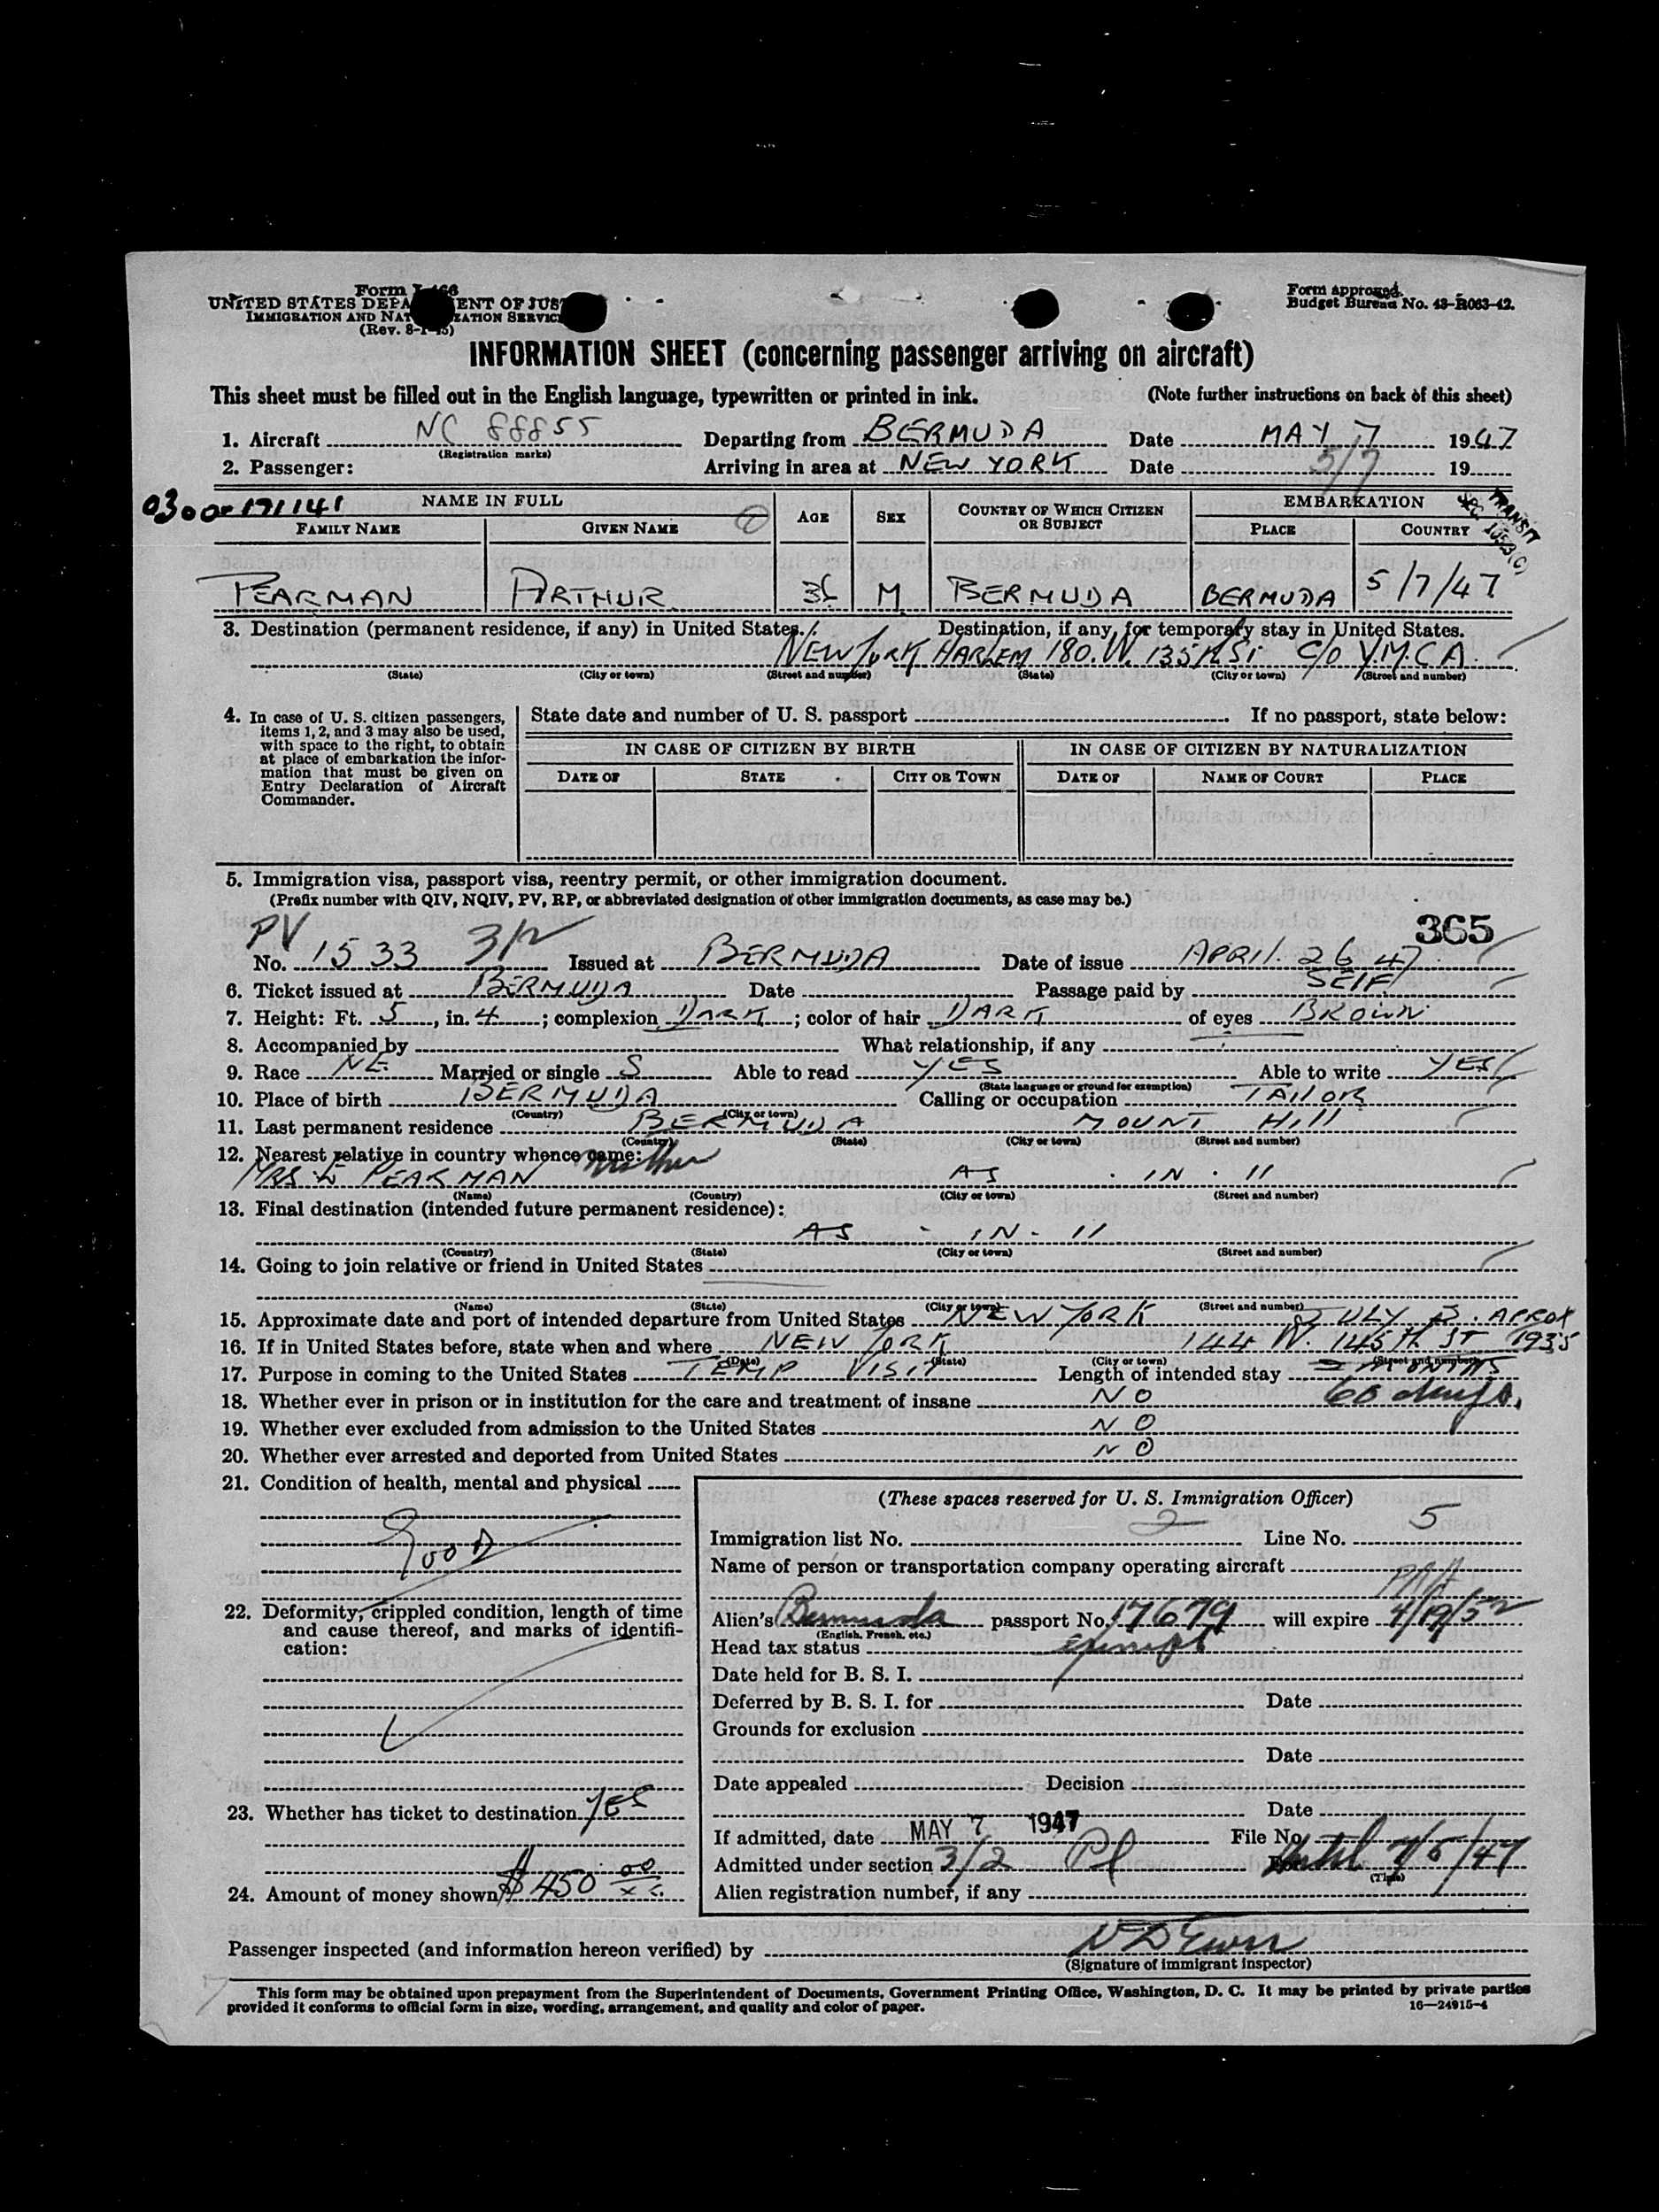 Form I-466
UNITED STATES DEPARTMENT OF JUSTICE
IMMIGRATION AND NATURALIZATION SERVICE
(Rev. 8-1-45)
Form approved.
Budget Bureau No. 43-R063-42.
INFORMATION SHEET (concerning passenger arriving on aircraft)
This sheet must be filled out in the English language, typewritten or printed in ink. (Note further instructions on back of this sheet)
1. Aircraft NC 88855 Departing from BERMUDA Date MAY 7 1947
(Registration marks)
2. Passenger: Arriving in area at NEW YORK Date 5/7 19
0300-171141 NAME IN FULL AGE SEX COUNTRY OF WHICH CITIZEN OR SUBJECT EMBARKATION
TRANSIT
FAMILY NAME GIVEN NAME PLACE COUNTRY
PEARMAN ARTHUR M BERMUDA BERMUDA 5/7/47
3. Destination (permanent residence, if any) in United States. Destination, if any, for temporary stay in United States.
NEW YORK HARLEM 180. W. 135th St c/o Y.M.C.A.
(State) (City or town) (Street and number) (State) (City or town) (Street and number)
4. In case of U. S. citizen passengers, items 1, 2, and 3 may also be used, with space to the right, to obtain at place of embarkation the information that must be given on Entry Declaration of Aircraft Commander.
State date and number of U. S. passport If no passport, state below:
IN CASE OF CITIZEN BY BIRTH IN CASE OF CITIZEN BY NATURALIZATION
DATE OF STATE CITY OR TOWN DATE OF NAME OF COURT PLACE
5. Immigration visa, passport visa, reentry permit, or other immigration document.
(Prefix number with QIV, NQIV, PV, RP, or abbreviated designation of other immigration documents, as case may be.)
365
PV 3/2
No. 1533 Issued at BERMUDA Date of issue APRIL 26 47
6. Ticket issued at BERMUDA Date Passage paid by SELF
7. Height: Ft. 5, in. 4; complexion DARK; color of hair DARK of eyes BROWN
8. Accompanied by What relationship, if any
9. Race NE. Married or single S Able to read YES Able to write YES
(State language or ground for exemption)
10. Place of birth BERMUDA Calling or occupation TAILOR
(Country) (City or town)
11. Last permanent residence BERMUDA MOUNT HILL
(Country) (State) (City or town) (Street and number)
12. Nearest relative in country whence came: mother
MRS E PEARMAN AS IN 11
(Name) (Country) (City or town) (Street and number)
13. Final destination (intended future permanent residence):
AS - IN - 11
(Country) (State) (City or town) (Street and number)
14. Going to join relative or friend in United States
(Name) (State) (City or town) (Street and number)
15. Approximate date and port of intended departure from United States NEW YORK JULY 3. APROX
16. If in United States before, state when and where NEW YORK 144 W. 145th ST 1935
(Date) (State) (City or town) (Street and number)
17. Purpose in coming to the United States TEMP VISIT Length of intended stay MONTHS
18. Whether ever in prison or in institution for the care and treatment of insane NO 60 days.
19. Whether ever excluded from admission to the United States NO
20. Whether ever arrested and deported from United States NO
21. Condition of health, mental and physical
GOOD
22. Deformity, crippled condition, length of time and cause thereof, and marks of identification:
23. Whether has ticket to destination YES
24. Amount of money shown $450 00/xx
(These spaces reserved for U. S. Immigration Officer)
Immigration list No. 2 Line No. 5
Name of person or transportation company operating aircraft
PAA
Alien's Bermuda passport No. 17679 will expire 4/19/52
(English, French, etc.)
Head tax status exempt
Date held for B. S. I.
Deferred by B. S. I. for Date
Grounds for exclusion
Date
Date appealed Decision
Date
If admitted, date MAY 7 1947 File No.
Admitted under section 3/2 Pl For Until 7/5/47
(Time)
Alien registration number, if any
Passenger inspected (and information hereon verified) by
(Signature of immigrant inspector)
This form may be obtained upon prepayment from the Superintendent of Documents, Government Printing Office, Washington, D. C. It may be printed by private parties
provided it conforms to official form in size, wording, arrangement, and quality and color of paper. 16—24915-4